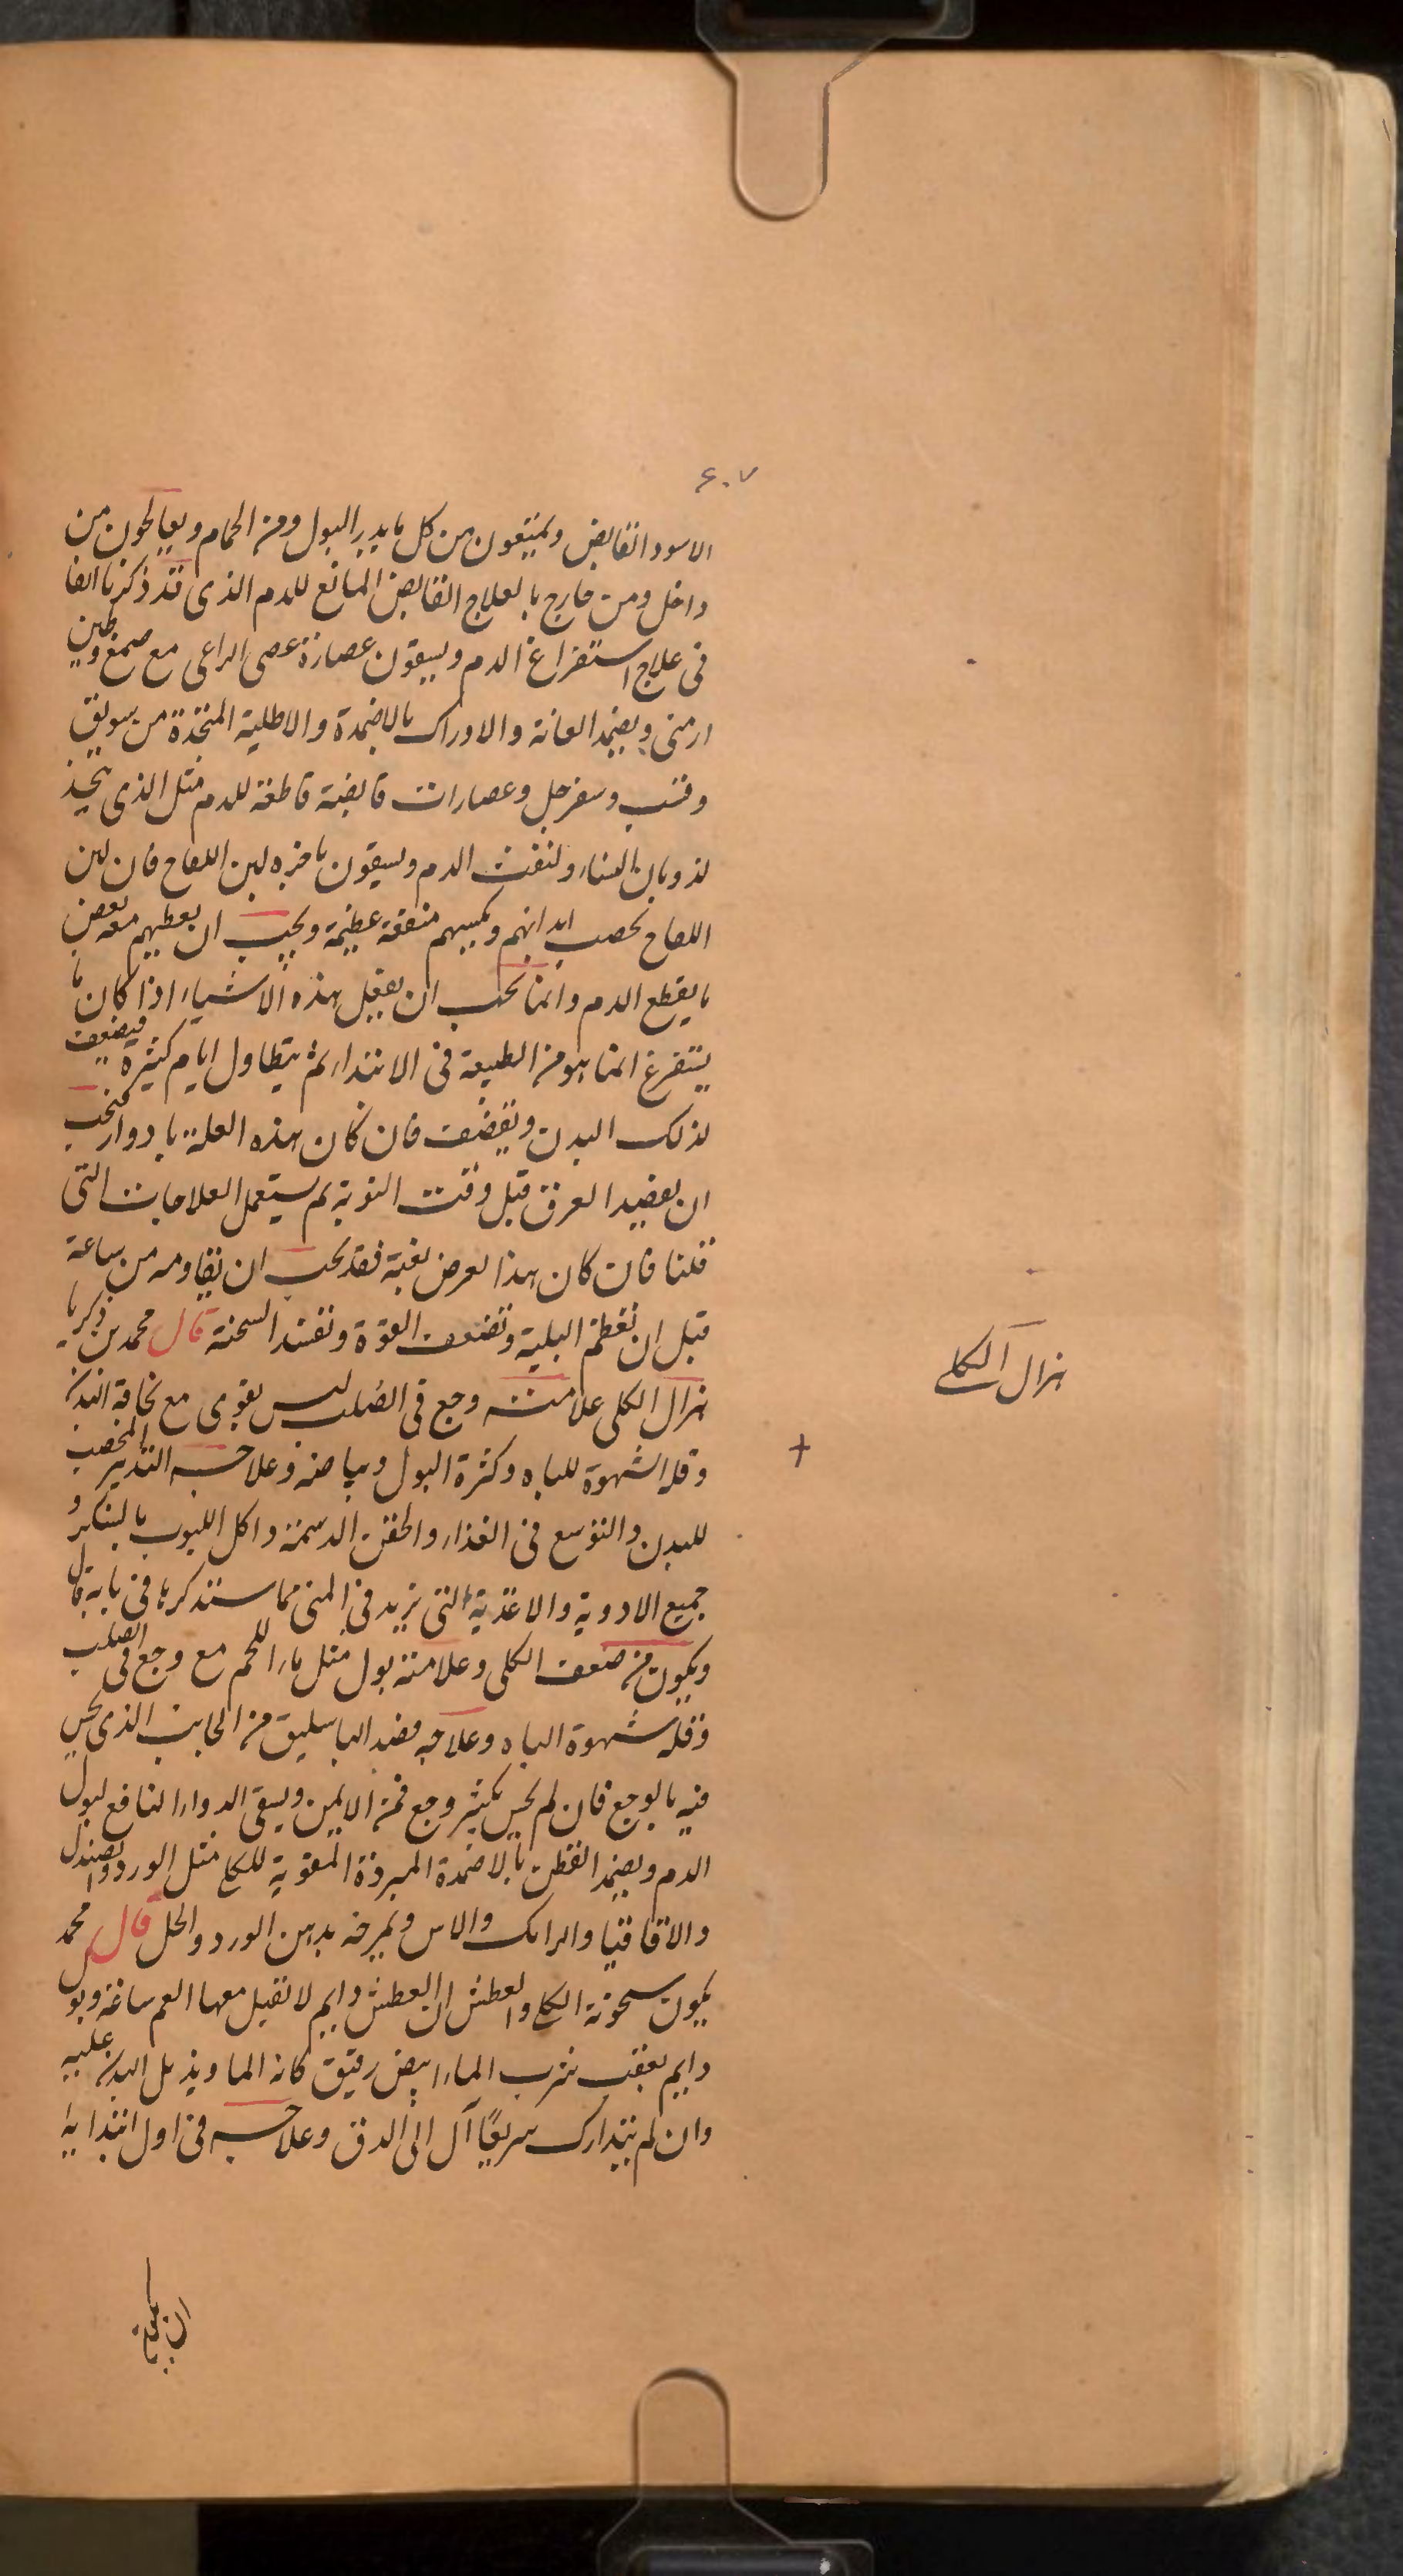 ٤٠٧
الاسود القابض ويمنعون من كل ما يدر البول ومن الحمام ويعالجون من
داخل ومن خارج بالعلاج القابض المانع للدم الذى قد ذكرنا انفا
فى علاج استفراغ الدم ويسقون عصارة عصى الراعى مع صمغ وطين
ارمنى ويضمد العانة والاوراك بالاضمدة والاطلية المتخذة من سويق
وقسب وسفرجل وعصارات قابضة قاطعة للدم مثل الذى يتخذ
لذوبان النساء ولنفث الدم ويسقون باخره لبن اللقاح فان لبن
اللقاح يخصب ابدانهم ويكسبهم منفعة عظيمة ويجب ان يعطيهم معه بعض
ما يقطع الدم وانما يجب ان يفعل هذه الاشياء اذا كان ما
يستفرغ انما هو من الطبيعة فى الابتداء ثم يتطاول ايام كثيرة فيضعف
لذلك البدن ويقضف فان كان هذه العلة بادوار فيجب
ان يفصد العرق قبل وقت النوبة ثم يستعمل العلاجات التى
قلنا فان كان هذا يعرض بغتة فقد يجب ان يقاومه من ساعة
قبل ان تعظم البلية وتضعف القوة وتفسد السحنة قال محمد بن زكريا
هزال الكلى علامته وجع فى الصلب ليس بقوى مع نحافة البدن
وقلة الشهوة للباه وكثرة البول وبياضه وعلاجه التدبير المخصب
للبدن والتوسع فى الغذاء والحقن الدسمة واكل اللبوب بالسكر و
جميع الادوية والاغذية التى تزيد فى المنى مما سنذكرها فى بابه قال
ويكون من ضعف الكلى وعلامته بول مثل ماء اللحم مع وجع فى الصلب
وقلة شهوة الباه وعلاجه فصد الباسليق من الجانب الذى يحس
فيه بالوجع فان لم يحس بكثير وجع فمن الايمن ويسقى الدواء النافع لبول
الدم ويضمد القطن بالاضمدة المبردة المقوية للكلى مثل الورد والصندل
والاقاقيا والرامك والاس ويمرخه بدهن الورد والخل قال محمد
يكون سخونة الكلى والعطش ان العطش دايم لا تقبل معها الفم ساعة وبول
دايم بعقب شرب الماء ابيض رقيق كانه الما ويذبل البدن عليه
وان لم يتدارك سريعًا آل الى الدق وعلاجه فى اول ابتدايه
هزال الكلى
+